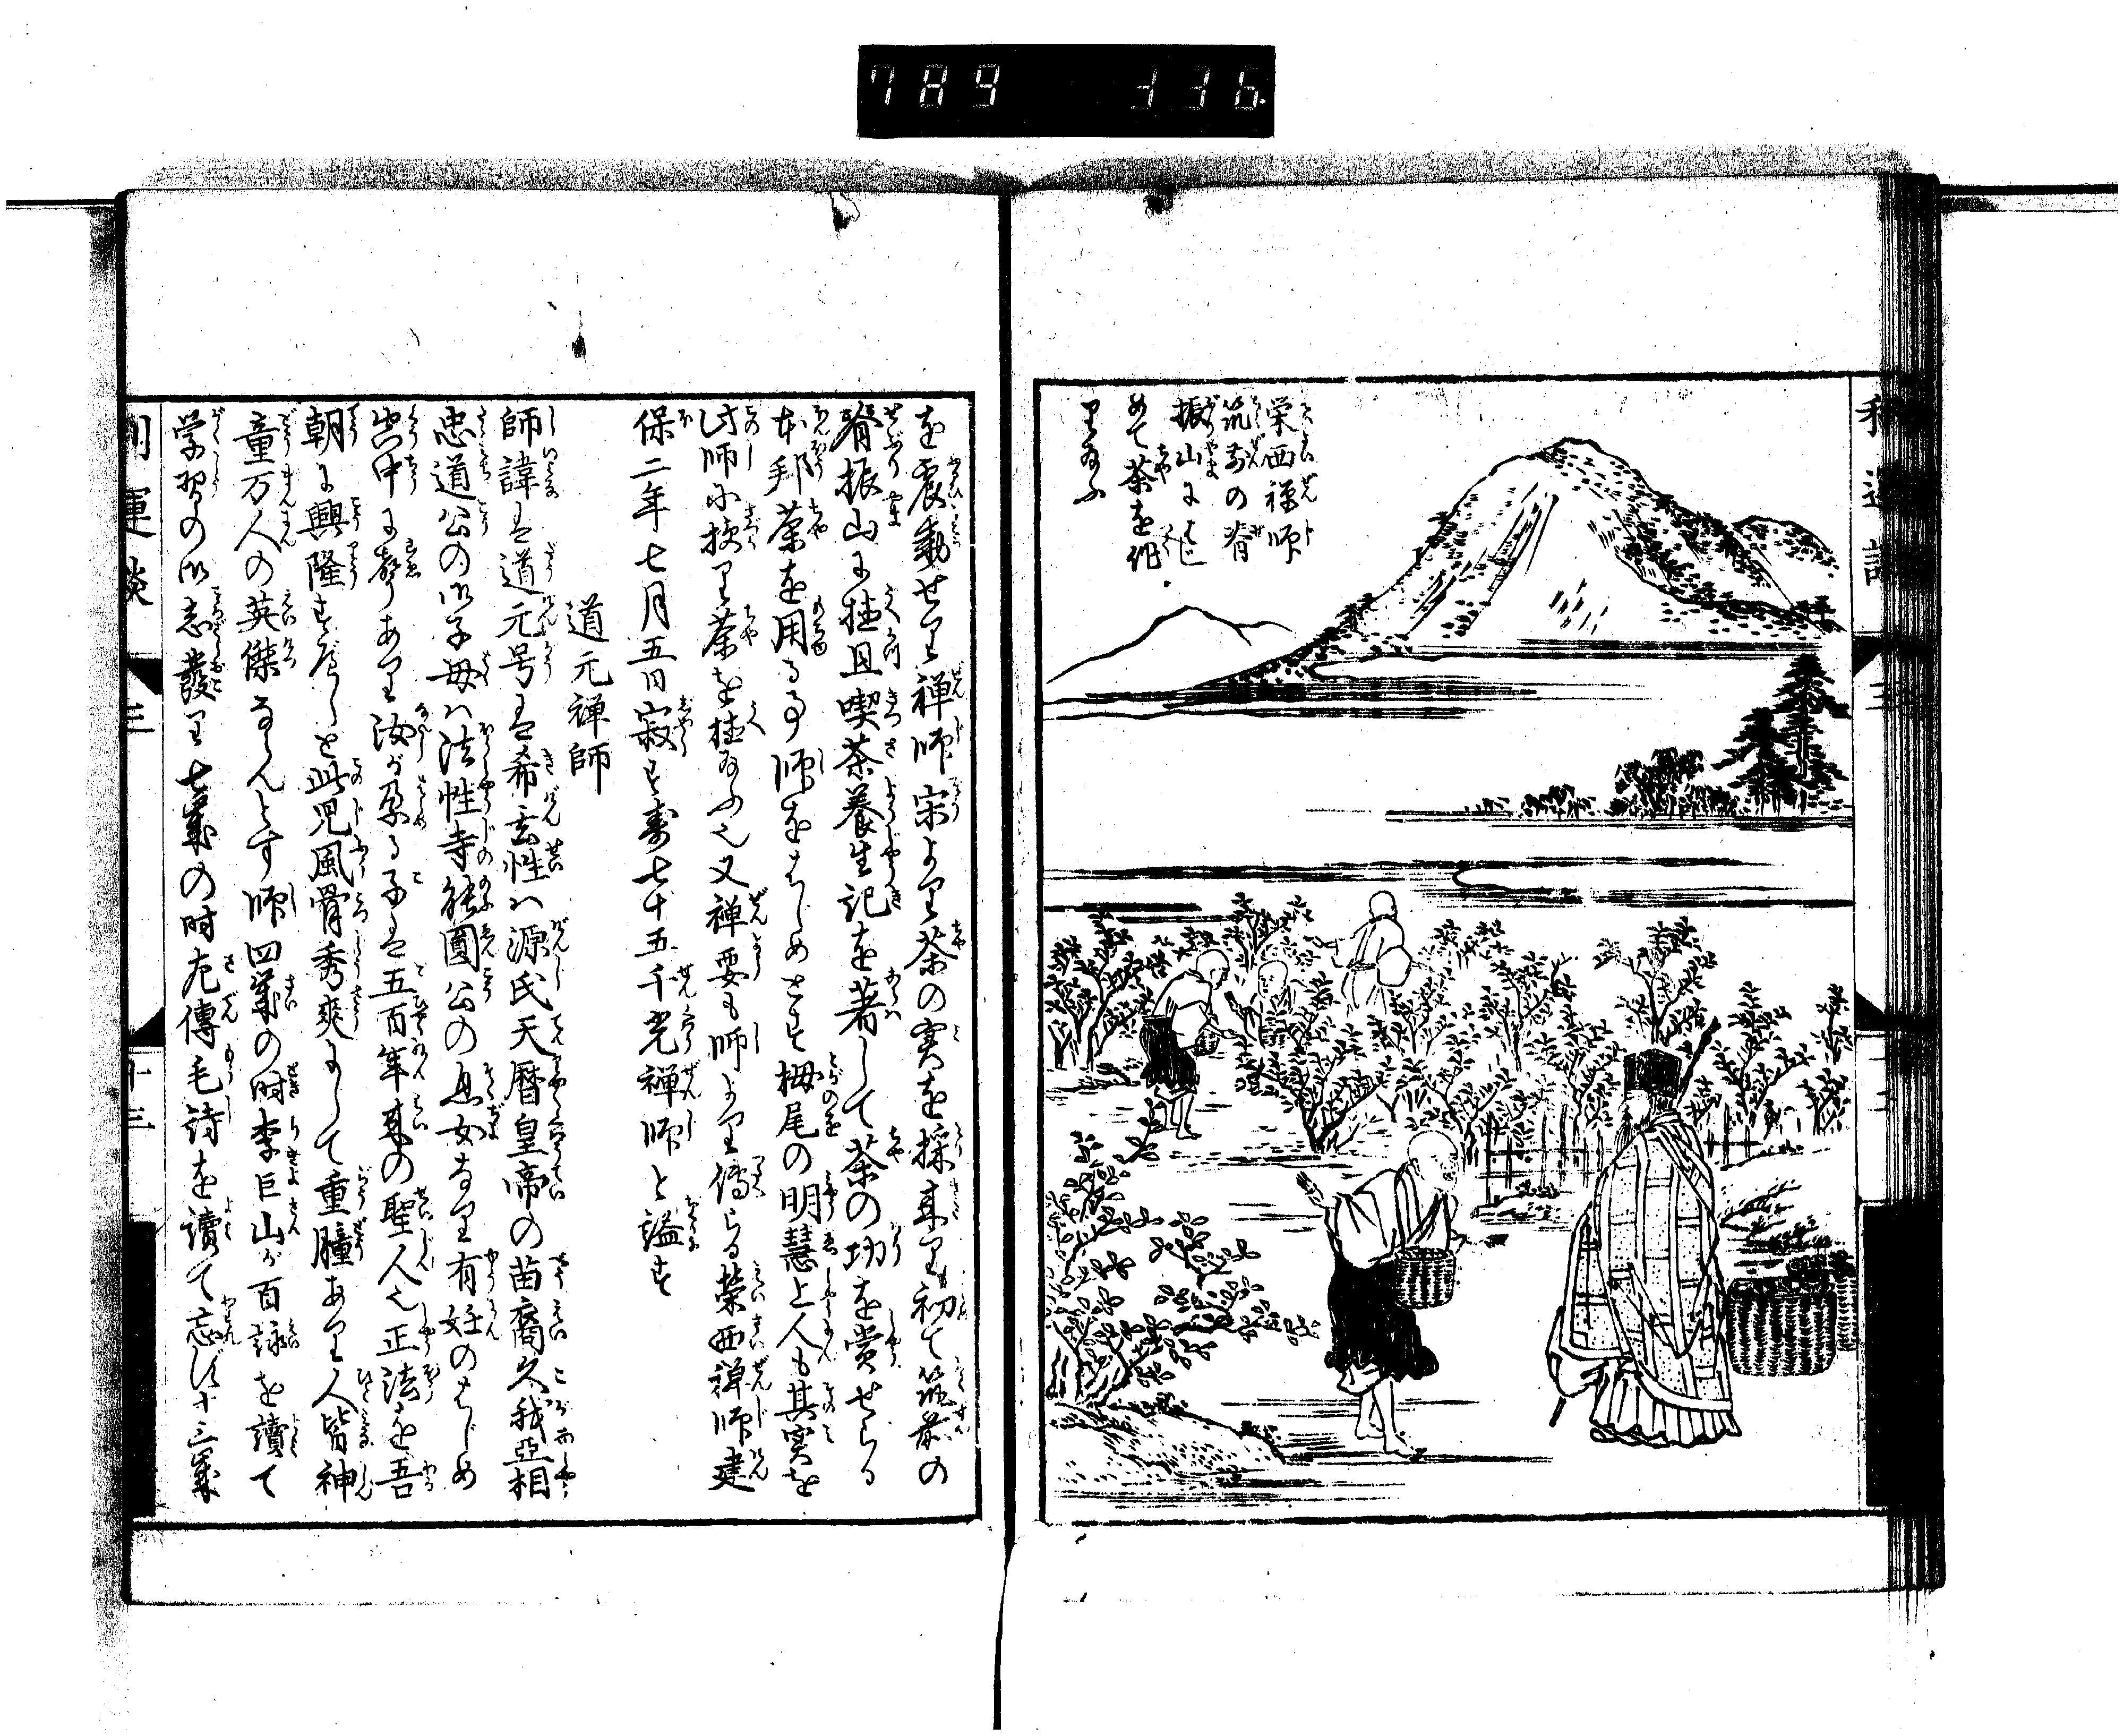 789 336
栄西禅師
筑前の脊
振山にはじ
めて茶を作
り給ふ
を震動せり禅師宋より茶の実を採来り初て筑前の
脊振山に植且喫茶養生記を著して茶の功を賞せらる
本邦茶を用る事師をはじめとす栂尾の明慧上人も其実を
此師に授り茶を植給ふ也又禅要も師より傳らる栄西禅師建
保二年七月五日寂す寿七十五千光禅師と謚す
道元禅師
師諱は道元号は希玄性ハ源氏天暦皇帝の苗裔久我亞相
忠道公の御子母ハ法性寺 圓公の息女なり有妊のはじめ
空中に声あり汝が孕る子は五百年来の聖人也正法を吾
朝に興隆すべしと此児風骨秀爽にして重瞳あり人皆神
童万人の英傑なんとす師四歳の時李巨山が百詠を讀て
学習の御志發り七歳の時左傳毛詩を讀て忘ず十三歳